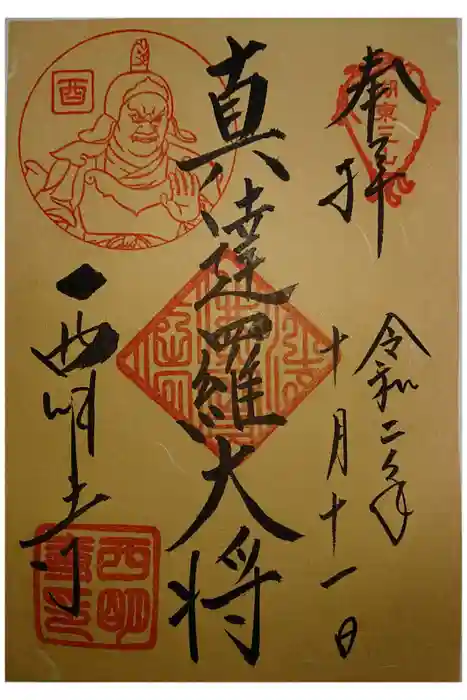 奉拝
湖東三山
令和二年
十月十一日
真達羅大将
酉
西明寺
西明